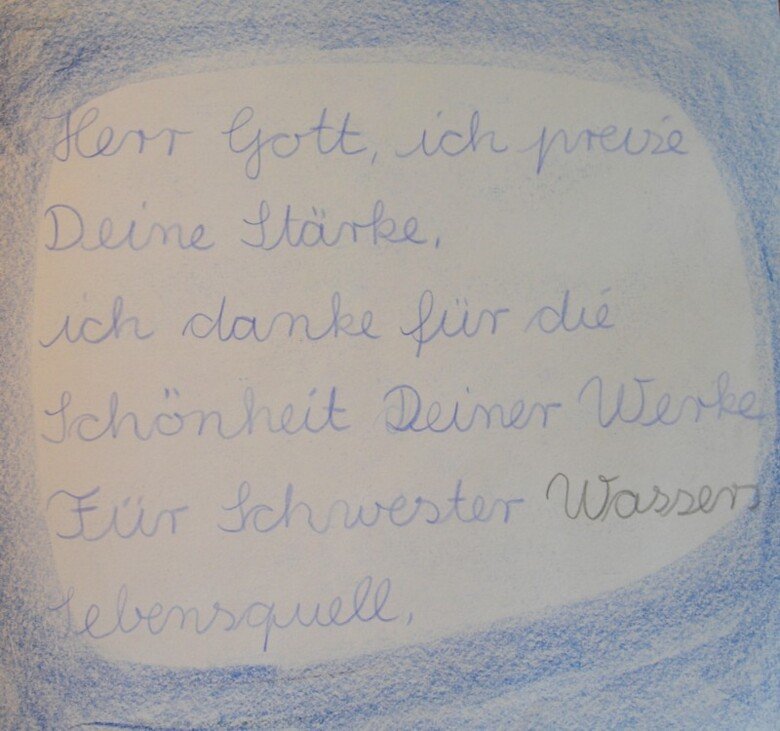 Herr Gott, ich preise
Deine Stärke,
ich danke für die
Schönheit Deiner Werke
Für Schwester Wassers
Lebensquell,